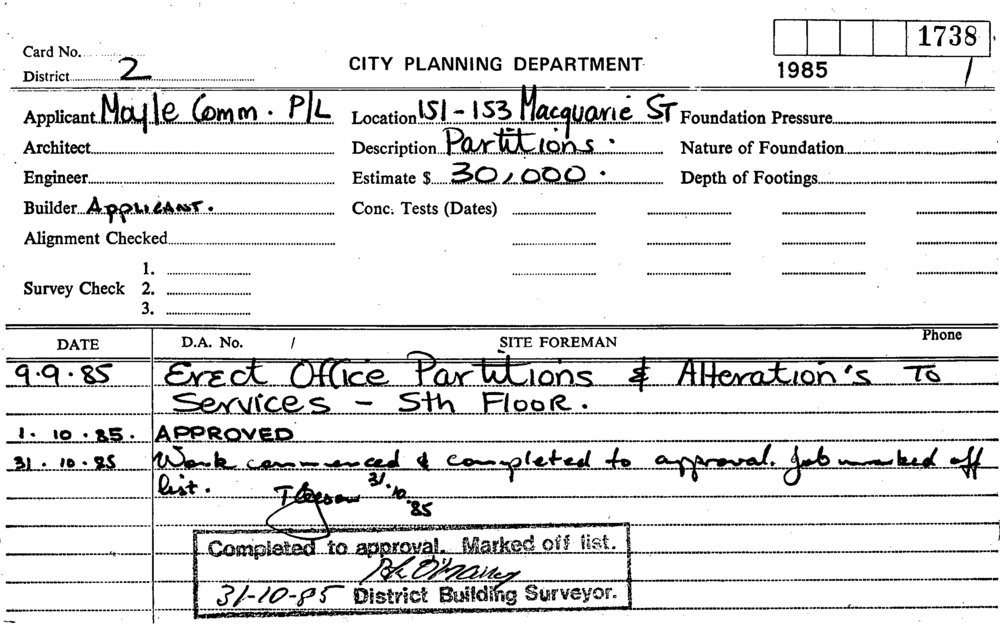 1738
Card No.
District 2
CITY PLANNING DEPARTMENT
1985 /
Applicant Moyle Comm. P/L Location 151-153 Macquarie ST Foundation Pressure
Architect Description Partitions. Nature of Foundation
Engineer Estimate $ 30,000. Depth of Footings
Builder APPLICANT. Conc. Tests (Dates)
Alignment Checked
1.
Survey Check 2.
3.
DATE D.A. No. / SITE FOREMAN Phone
9.9.85 Erect Office Partitions & Alteration's To
Services - 5th Floor.
1.10.85. APPROVED
31.10.85 Work commenced & completed to approval. Job marked off
list. 31.10.85
Completed to approval. Marked off list.
31-10-85 District Building Surveyor.